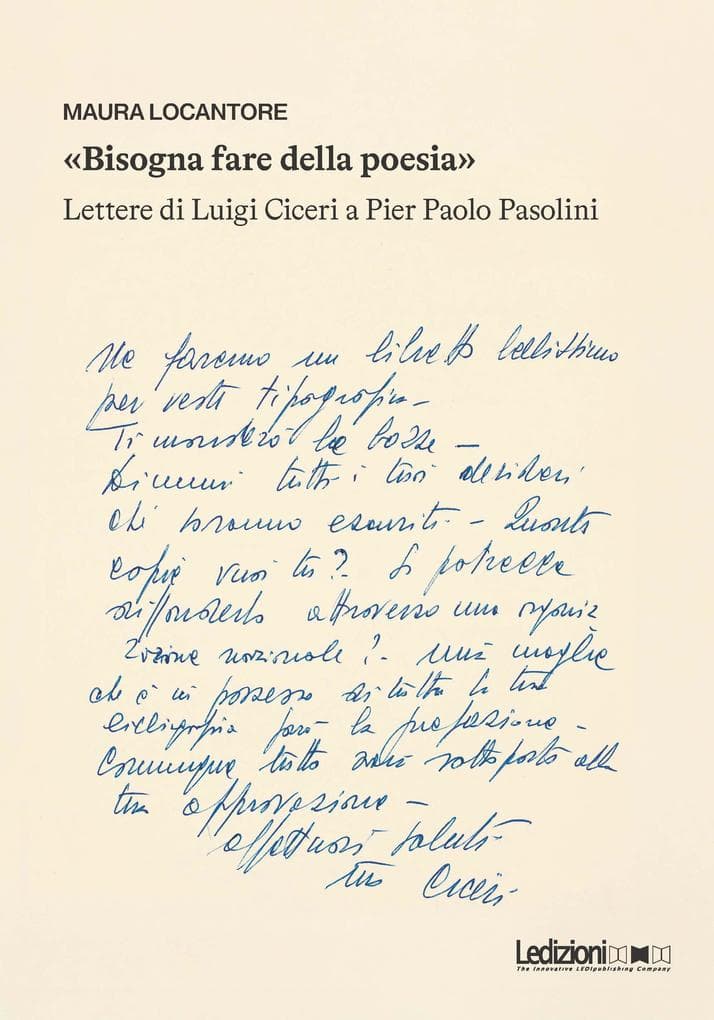 MAURA LOCANTORE
«Bisogna fare della poesia»
Lettere di Luigi Ciceri a Pier Paolo Pasolini
Ne faremo un libretto bellissimo
per veste tipografica –
Ti manderò le bozze –
Dimmi tutti i tuoi desideri
che saranno esauriti – Quante
copie vuoi tu? – Si potrebbe
diffonderlo attraverso una organiz
zazione nazionale? – Mia moglie
che è in possesso di tutta la tua
bibliografia farà la prefazione –
Comunque tutto sarà sottoposto alla
tua approvazione –
affettuosi saluti
tuo Ciceri
Ledizioni
The Innovative LEDIpublishing Company